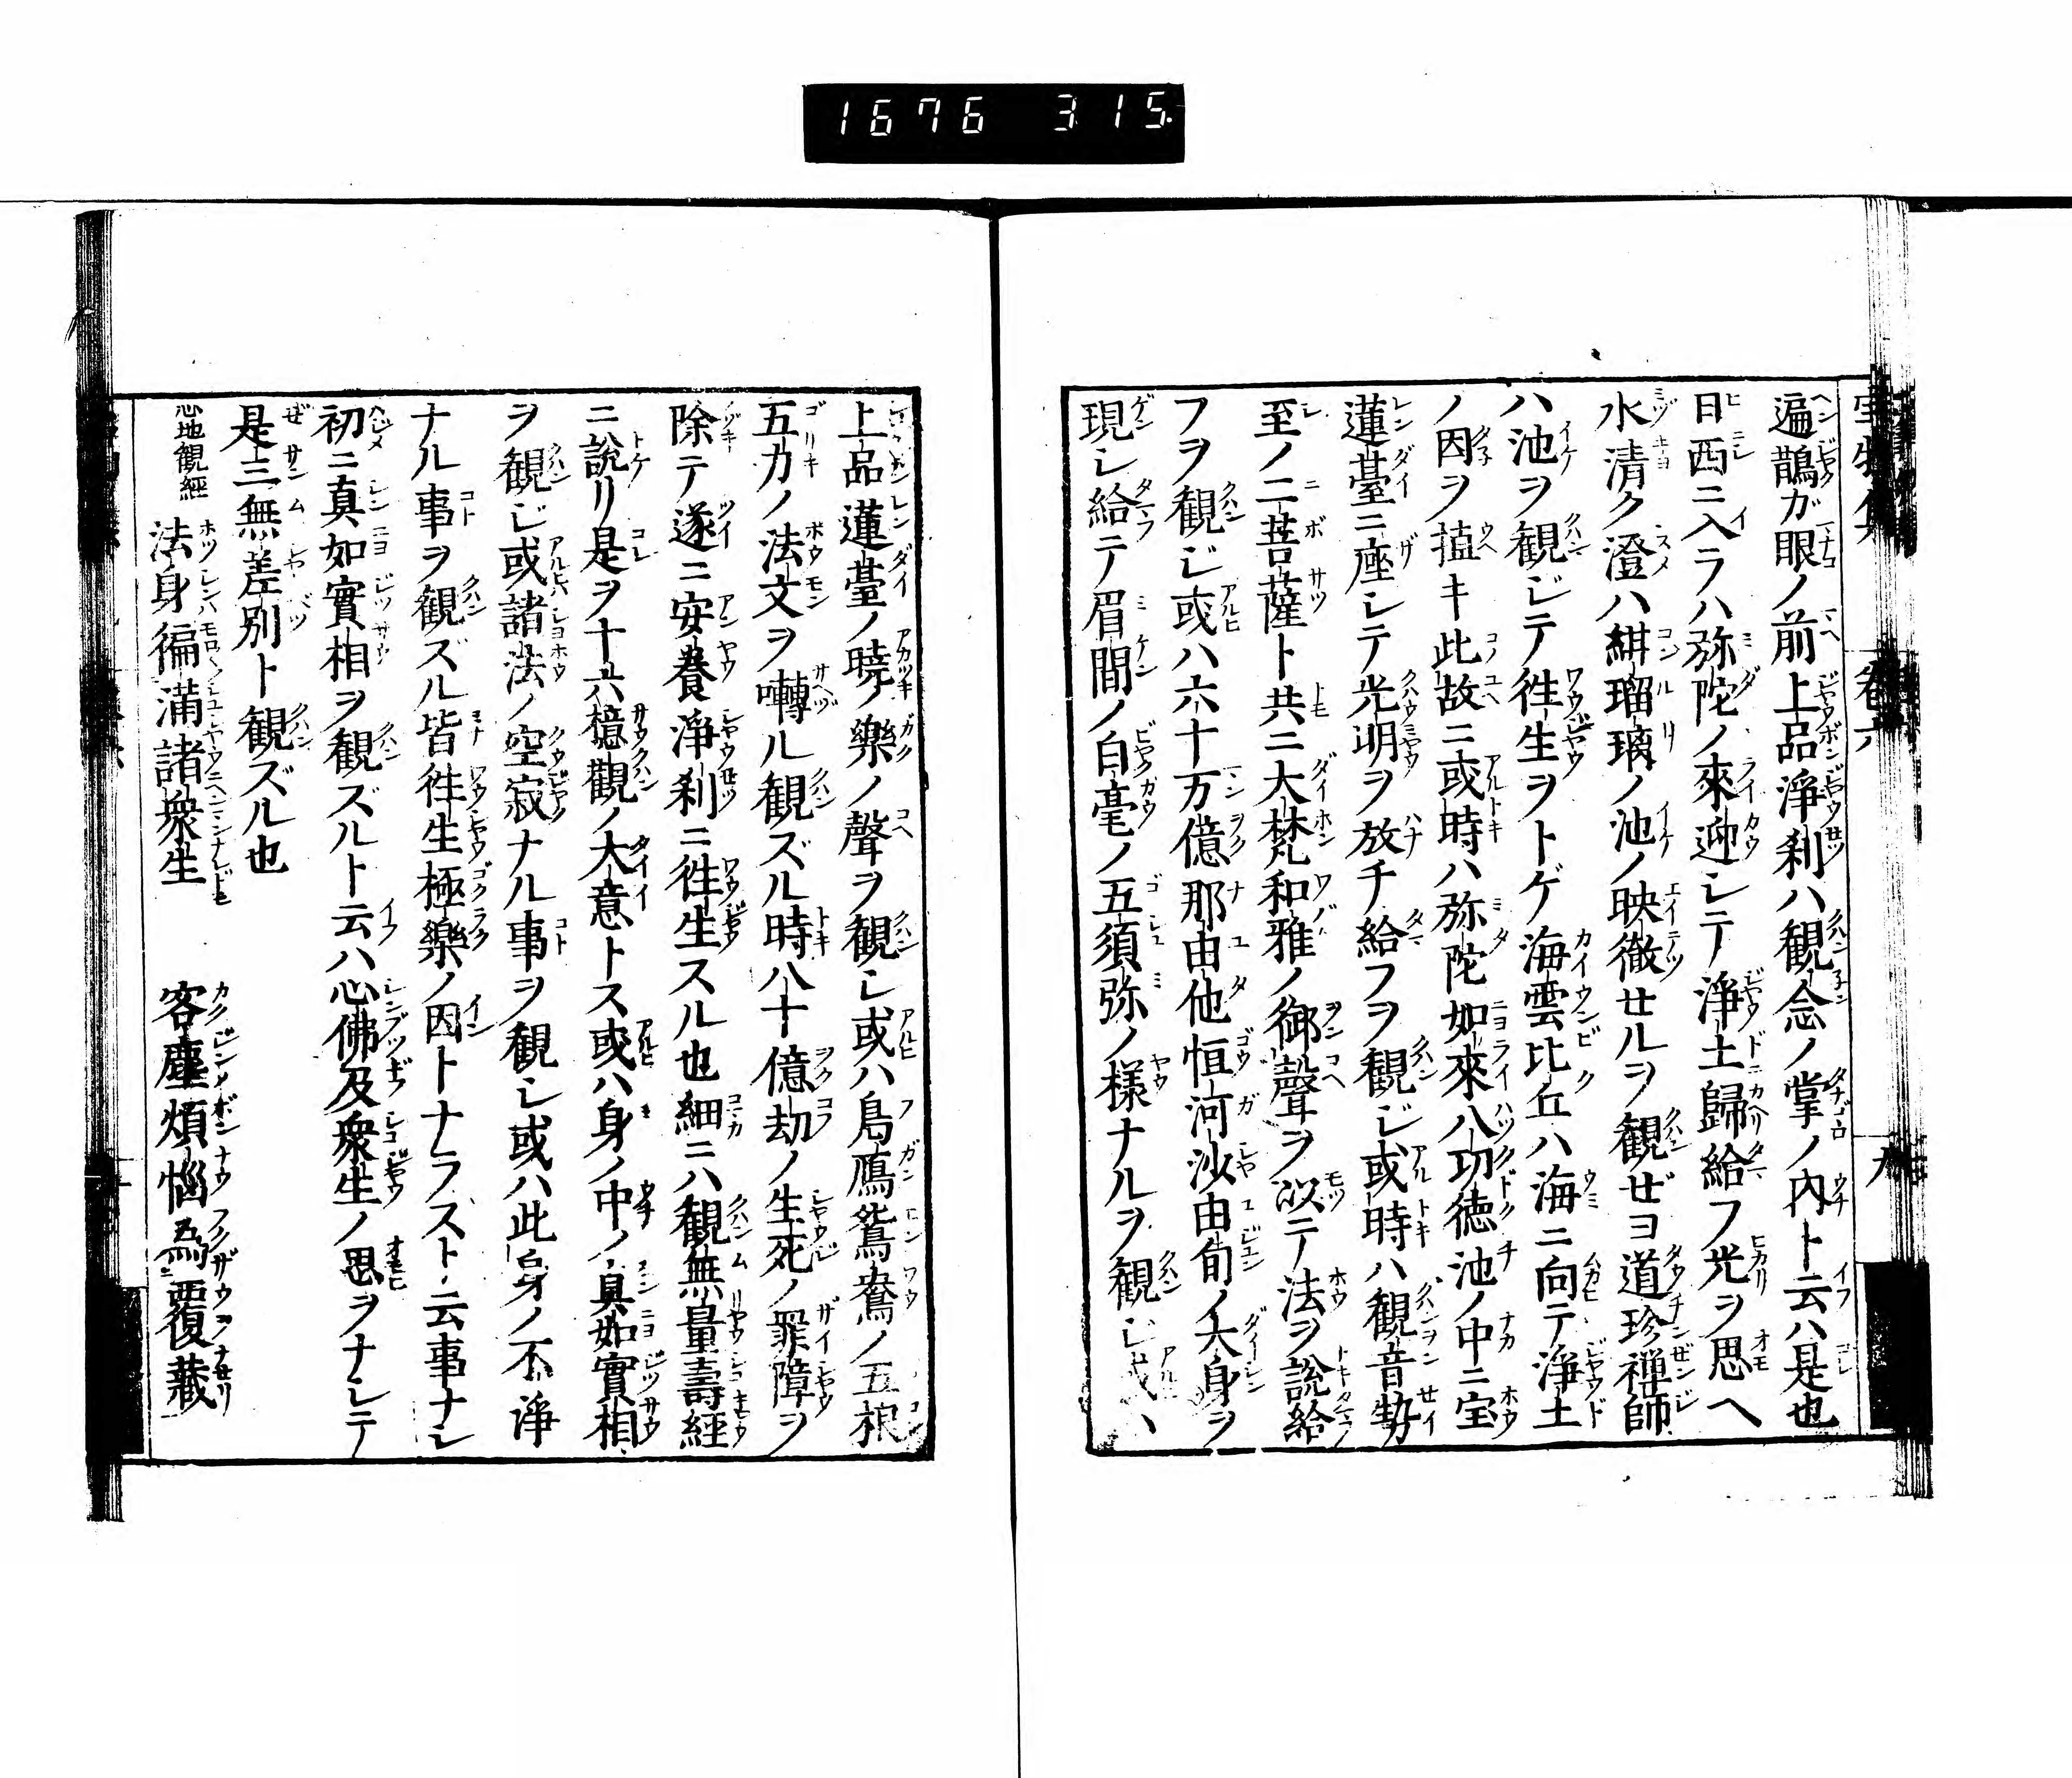 1676 315.
卷六 九
遍鵲ガ眼ノ前上品淨刹ハ観念ノ掌ノ内ト云ハ是也
日西ニ入ラハ弥陀ノ來迎シテ淨土歸給フ光ヲ思ヘ
水清ク澄ハ紺瑠璃ノ池ノ映徹セルヲ観ゼヨ道珍禅師
ハ池ヲ観ジテ徃生ヲトゲ海雲比丘ハ海ニ向テ淨土
ノ因ヲ殖キ此故ニ或時ハ弥陀如來八功徳池ノ中ニ宝
蓮臺ニ座シテ光明ヲ放チ給フヲ観ジ或時ハ観音勢
至ノ二菩薩ト共ニ大梵和雅ノ御聲ヲ以テ法ヲ說給
フヲ観ジ或ハ六十万億那由他恒河沙由旬ノ大身ヲ
現シ給テ眉間ノ白毫ノ五須弥ノ様ナルヲ観ジ或ハ
上品蓮臺ノ曉ノ樂ノ聲ヲ観シ或ハ鳬鴈鴛鴦ノ五根
五力ノ法文ヲ囀ル観ズル時八十億劫ノ生死ノ罪障ヲ
除テ遂ニ安養淨刹ニ徃生スル也細ニハ観無量壽經
ニ說リ是ヲ十六想觀ノ大意トス或ハ身ノ中ノ真如實相
ヲ観ジ或諸法ノ空寂ナル事ヲ観シ或ハ此身ノ不淨
ナル事ヲ観ズル皆徃生極樂ノ因トナラスト云事ナシ
初ニ真如實相ヲ観ズルト云ハ心佛及衆生ノ思ヲナシテ
是三無差別ト観ズル也
心地観經 法身徧滿諸衆生 客塵煩惱為覆藏